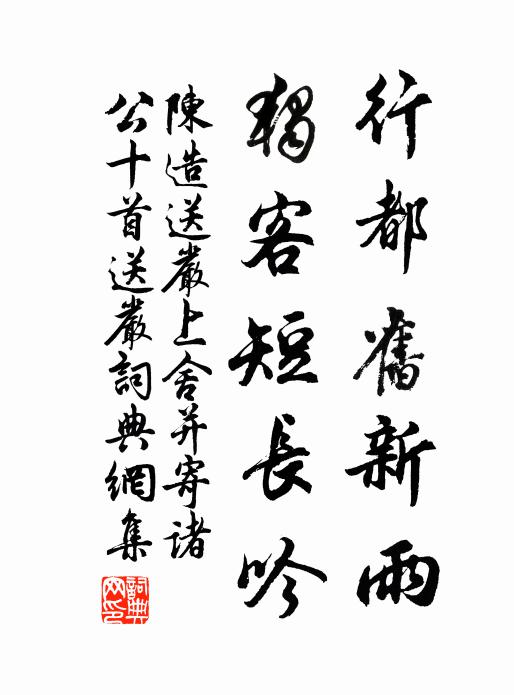 行都舊新雨
獨客短長吟
陳造送嚴上舍并寄諸
公十首送嚴詞典網集
詞典網印